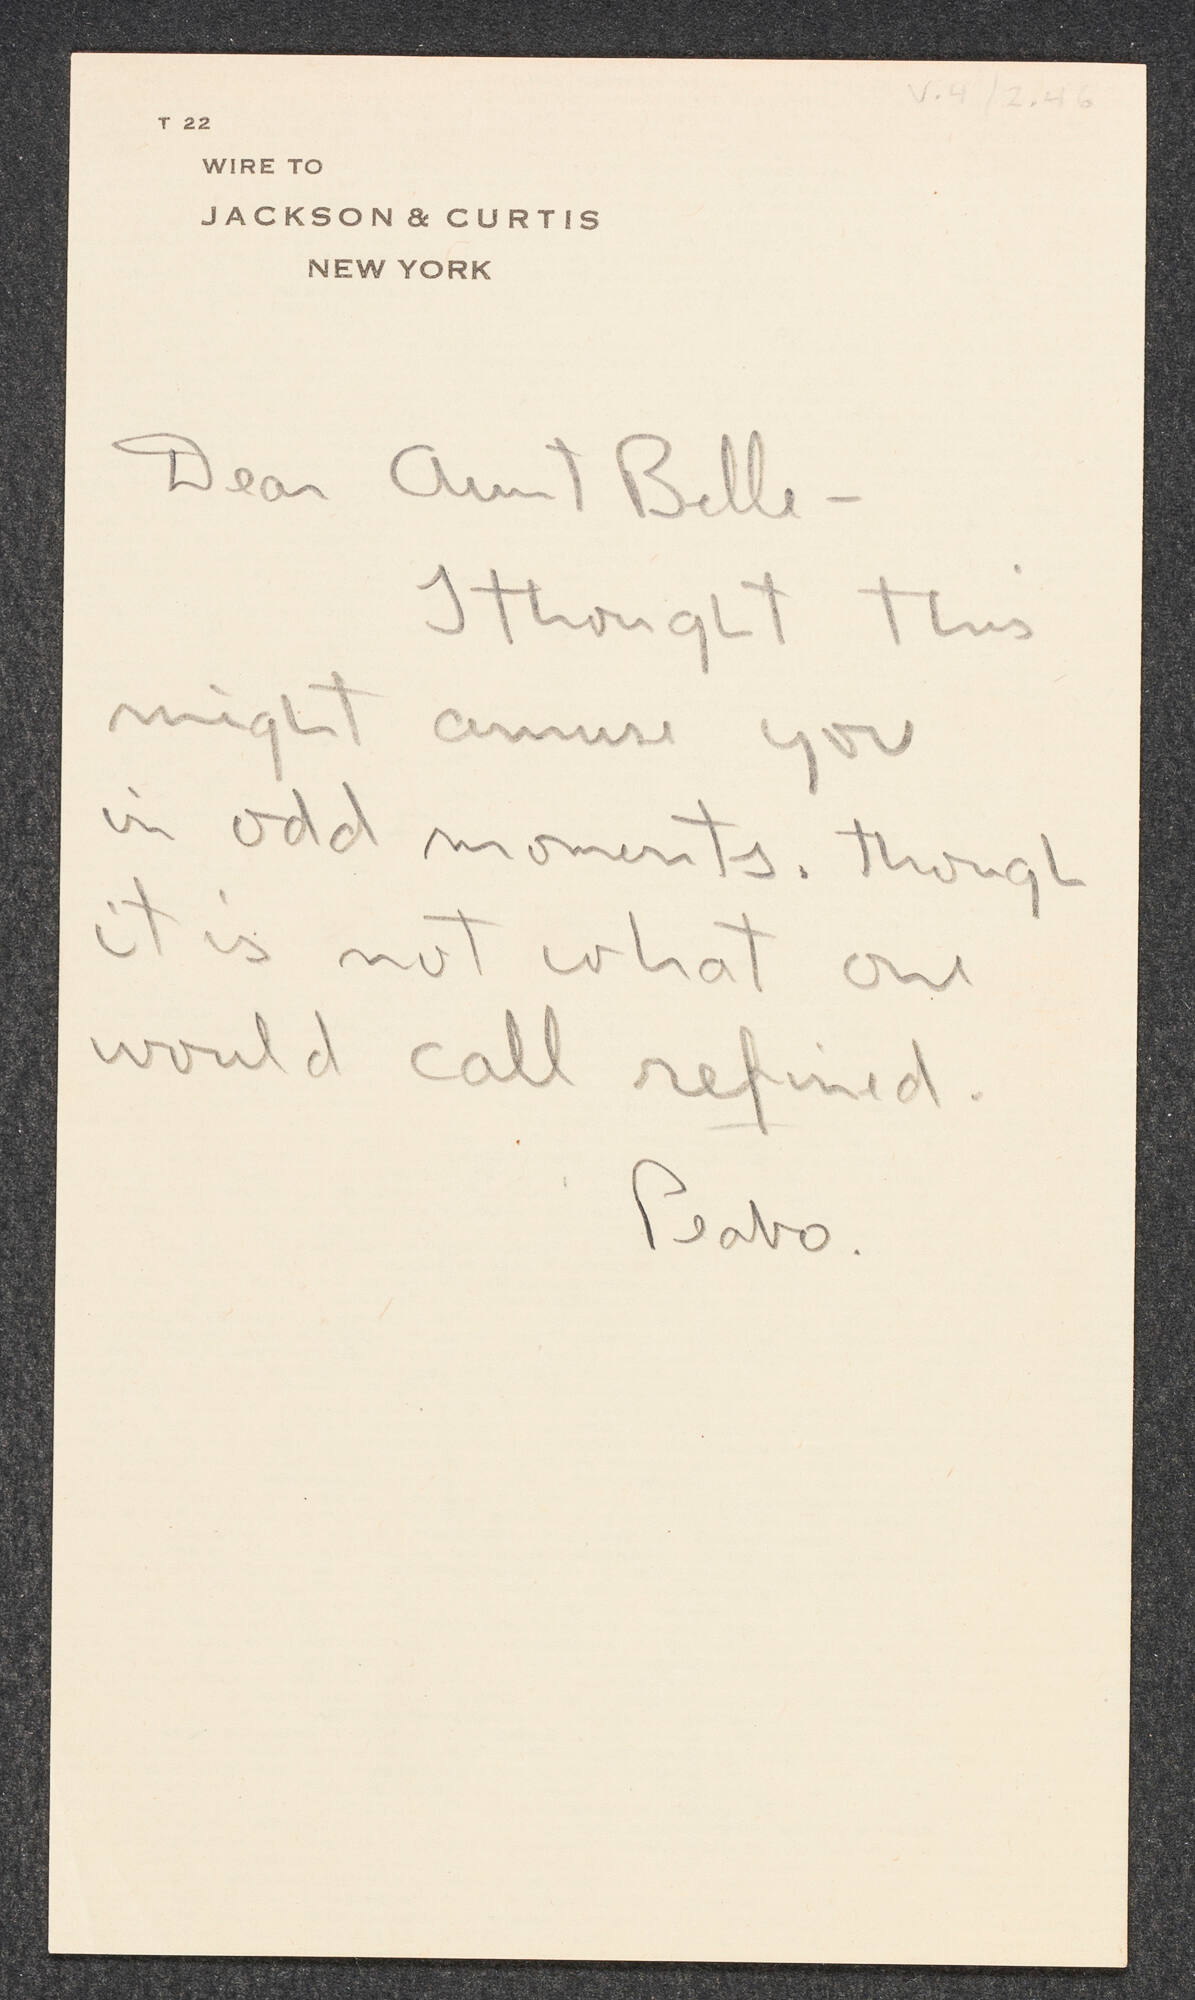 V.4/2.46
T 22
WIRE TO
JACKSON & CURTIS
NEW YORK
Dear Aunt Belle -
I thought this
might amuse you
in odd moments. though
it is not what one
would call refined.
Peabo.